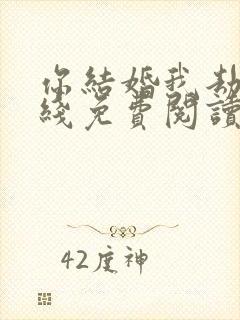 你結婚我劫
綫免費閱讀
42度神